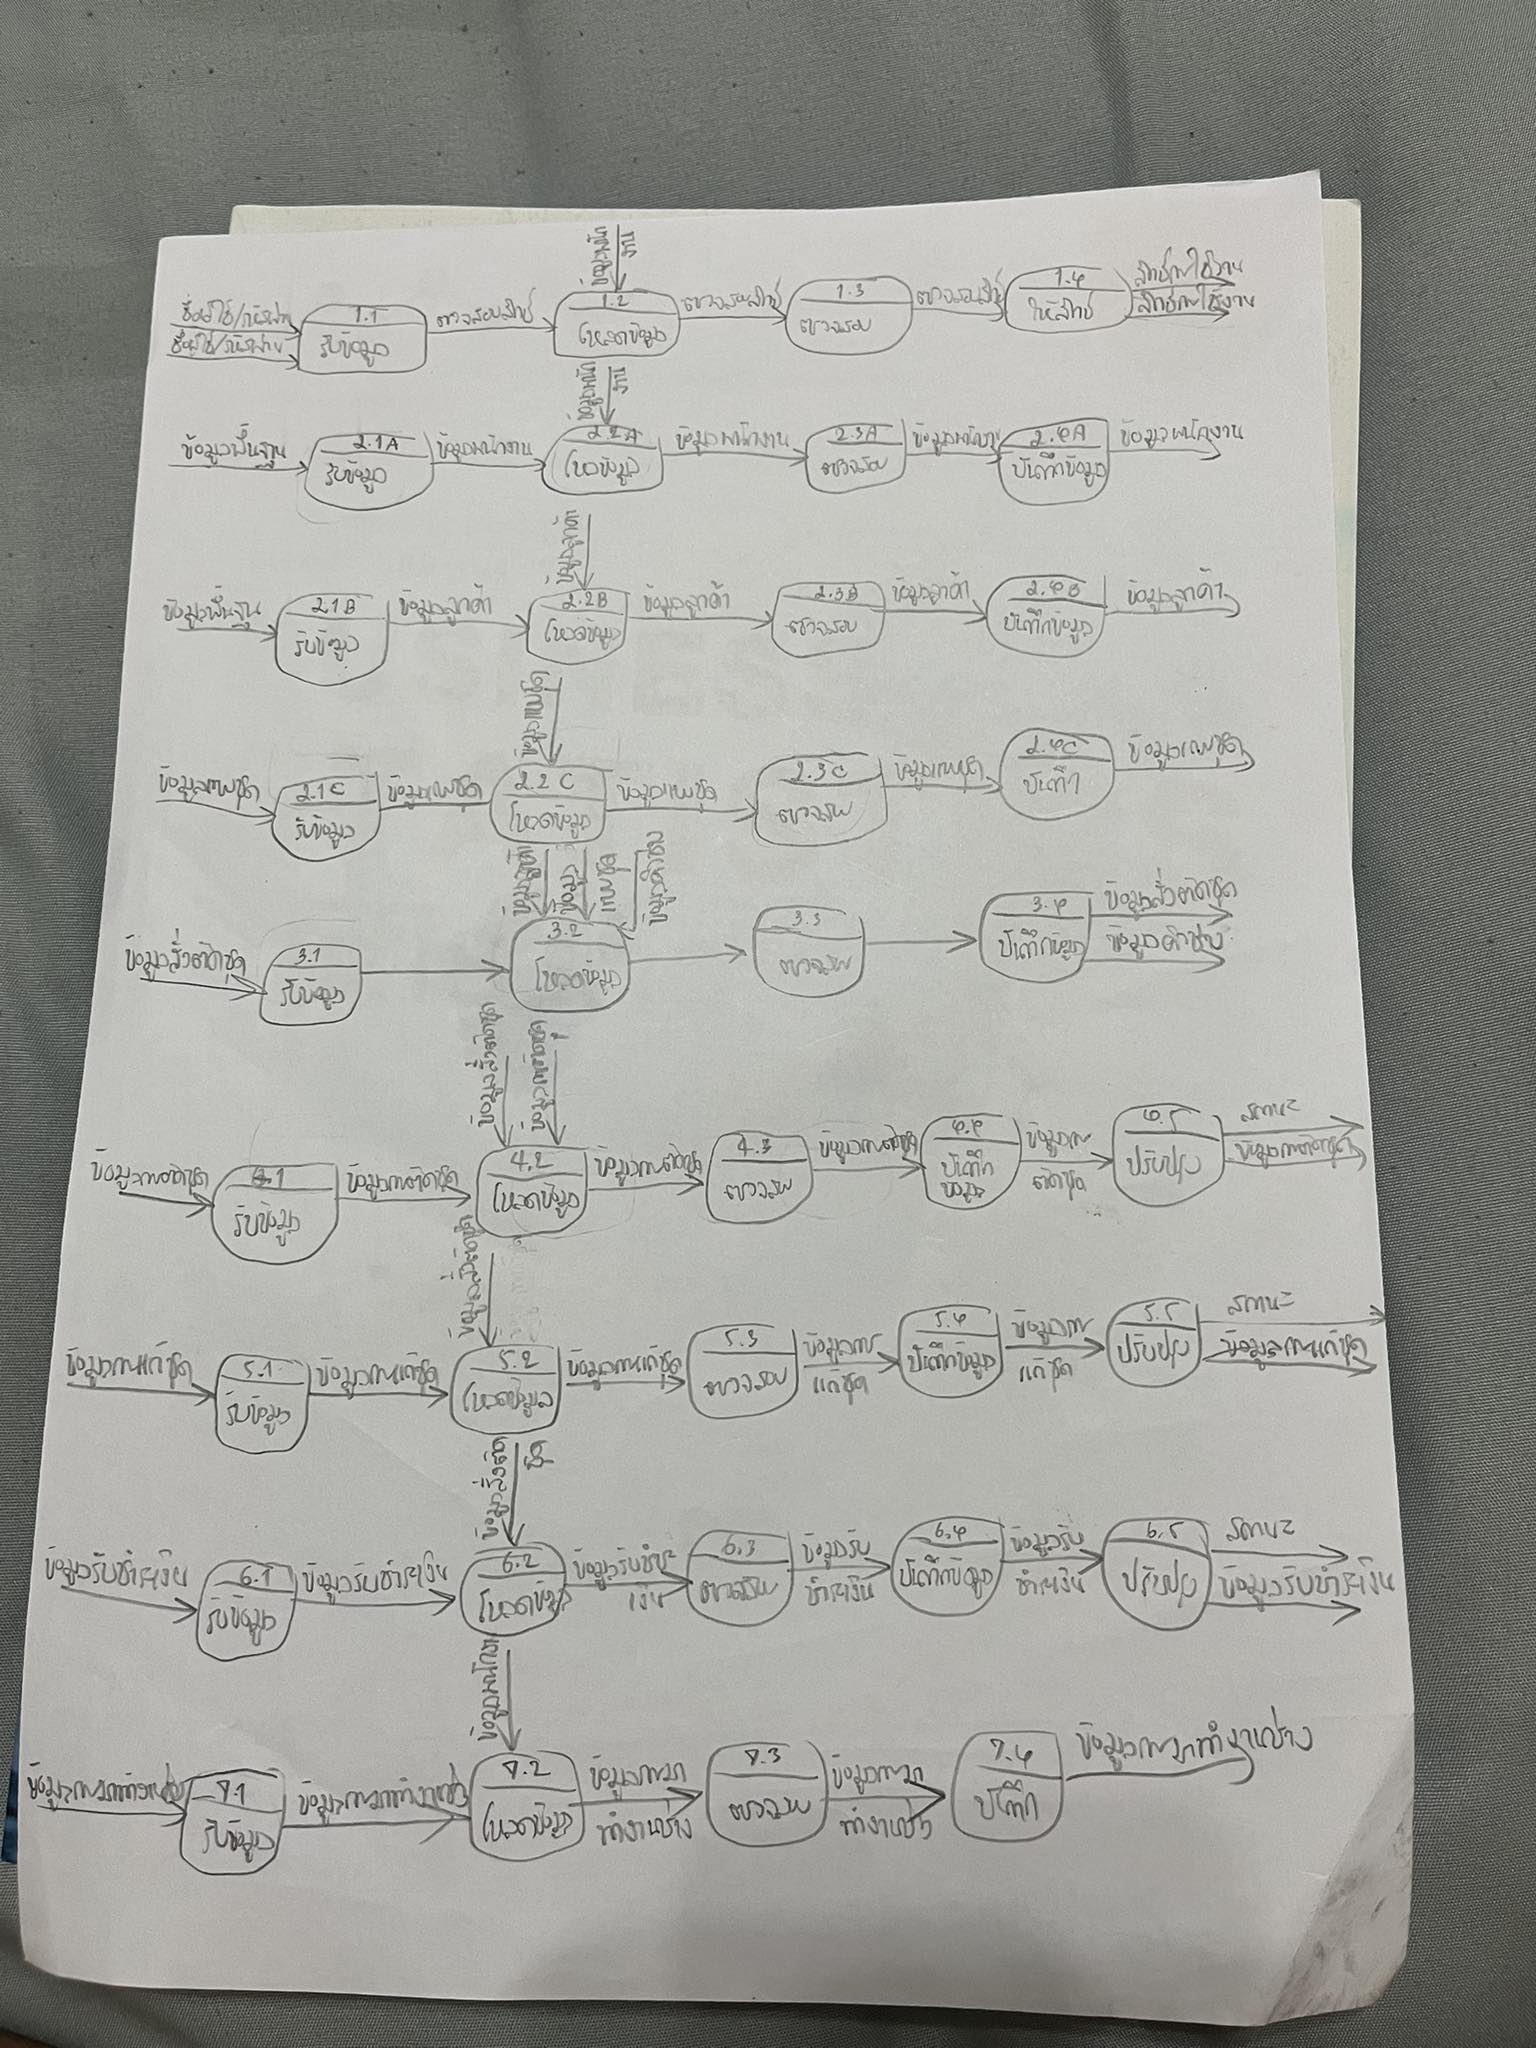 ข้อมูลพนักงาน
ชื่อผู้ใช้/รหัสผ่าน
ชื่อผู้ใช้/รหัสผ่าน
1.1
รับข้อมูล
ตรวจสอบสิทธ์
1.2
โหลดข้อมูล
ตรวจสอบสิทธ์
1.3
ตรวจสอบ
ตรวจสอบสิทธ์
1.4
ให้สิทธ์
สิทธ์การใช้งาน
สิทธ์การใช้งาน
ข้อมูลพนักงาน
ข้อมูลพื้นฐาน
2.1A
รับข้อมูล
ข้อมูลพนักงาน
2.2A
โหลดข้อมูล
ข้อมูลพนักงาน
2.3A
ตรวจสอบ
ข้อมูลพนักงาน
2.4A
บันทึกข้อมูล
ข้อมูลพนักงาน
ข้อมูลลูกค้า
ข้อมูลพื้นฐาน
2.1B
รับข้อมูล
ข้อมูลลูกค้า
2.2B
โหลดข้อมูล
ข้อมูลลูกค้า
2.3B
ตรวจสอบ
ข้อมูลลูกค้า
2.4B
บันทึกข้อมูล
ข้อมูลลูกค้า
ข้อมูลแบบชุด
2.1C
รับข้อมูล
ข้อมูลแบบชุด
2.2C
โหลดข้อมูล
ข้อมูลแบบชุด
2.3C
ตรวจสอบ
ข้อมูลแบบชุด
2.4C
บันทึก
ข้อมูลแบบชุด
ข้อมูลลูกค้า
ข้อมูล
แบบชุด
ข้อมูลสั่งตัดชุด
3.1
รับข้อมูล
3.2
โหลดข้อมูล
3.3
ตรวจสอบ
3.4
บันทึกข้อมูล
ข้อมูลสั่งตัดชุด
ข้อมูลสั่งตัดชุด
ข้อมูลการตัดชุด
4.1
รับข้อมูล
ข้อมูลการตัดชุด
4.2
โหลดข้อมูล
ข้อมูลการตัดชุด
4.3
ตรวจสอบ
ข้อมูลการตัดชุด
4.4
บันทึก
ข้อมูล
ข้อมูลการ
ตัดชุด
4.5
ปรับปรุง
สถานะ
ข้อมูลการตัดชุด
ข้อมูลสั่งตัดชุด
ข้อมูลการแก้ชุด
5.1
รับข้อมูล
ข้อมูลการแก้ชุด
5.2
โหลดข้อมูล
ข้อมูลการแก้ชุด
5.3
ตรวจสอบ
ข้อมูลการ
แก้ชุด
5.4
บันทึกข้อมูล
ข้อมูลการ
แก้ชุด
5.5
ปรับปรุง
สถานะ
ข้อมูลการแก้ชุด
ข้อมูลสั่งตัด
ชุด
ข้อมูลรับชำระเงิน
6.1
รับข้อมูล
ข้อมูลรับชำระเงิน
6.2
โหลดข้อมูล
ข้อมูลรับชำระ
เงิน
6.3
ตรวจสอบ
ข้อมูลรับ
ชำระเงิน
6.4
บันทึกข้อมูล
ข้อมูลรับ
ชำระเงิน
6.5
ปรับปรุง
สถานะ
ข้อมูลรับชำระเงิน
ข้อมูลพนักงาน
7.1
รับข้อมูล
7.2
โหลดข้อมูล
7.3
ตรวจสอบ
7.4
บันทึก